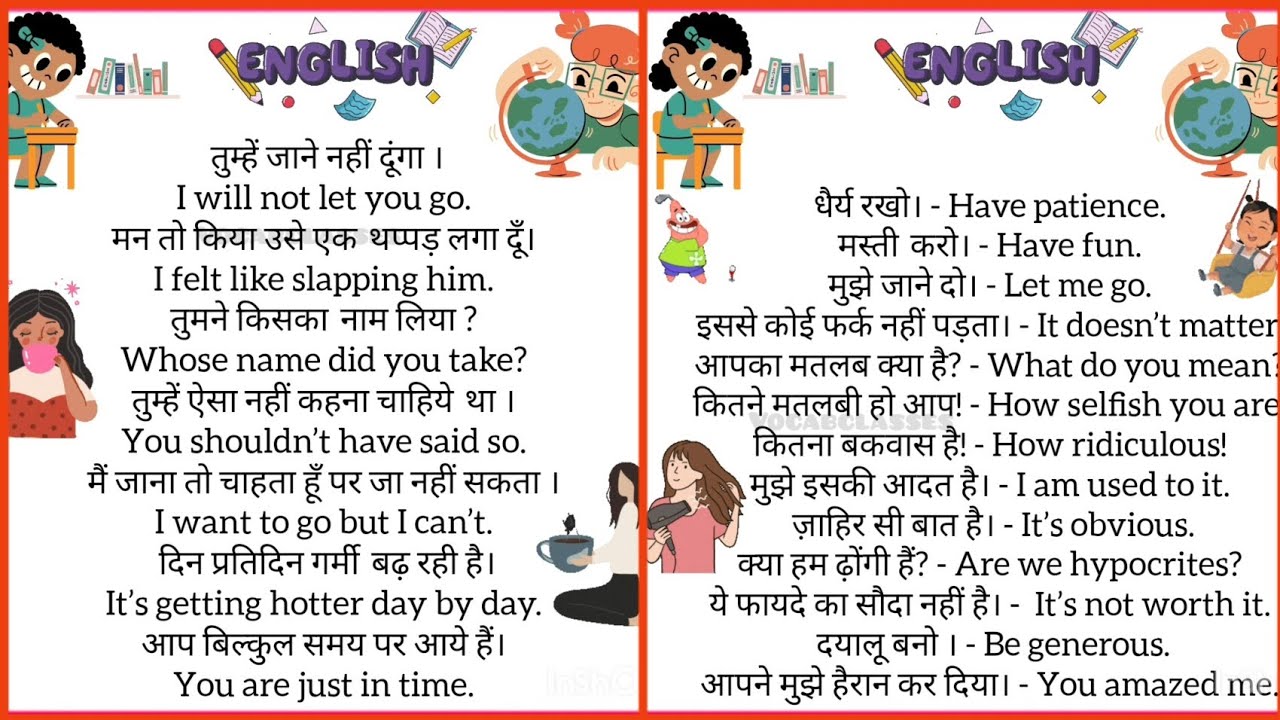 ENGLISH
तुम्हें जाने नहीं दूंगा ।
I will not let you go.
मन तो किया उसे एक थप्पड़ लगा दूँ।
I felt like slapping him.
तुमने किसका नाम लिया ?
Whose name did you take?
तुम्हें ऐसा नहीं कहना चाहिये था ।
You shouldn’t have said so.
मैं जाना तो चाहता हूँ पर जा नहीं सकता ।
I want to go but I can’t.
दिन प्रतिदिन गर्मी बढ़ रही है।
It’s getting hotter day by day.
आप बिल्कुल समय पर आये हैं।
You are just in time.
ENGLISH
धैर्य रखो। - Have patience.
मस्ती करो। - Have fun.
मुझे जाने दो। - Let me go.
इससे कोई फर्क नहीं पड़ता। - It doesn’t matter
आपका मतलब क्या है? - What do you mean?
कितने मतलबी हो आप! - How selfish you are
VOCABCLASSES
कितना बकवास है! - How ridiculous!
मुझे इसकी आदत है। - I am used to it.
ज़ाहिर सी बात है। - It’s obvious.
क्या हम ढ़ोंगी हैं? - Are we hypocrites?
ये फायदे का सौदा नहीं है। - It’s not worth it.
दयालू बनो । - Be generous.
आपने मुझे हैरान कर दिया। - You amazed me.